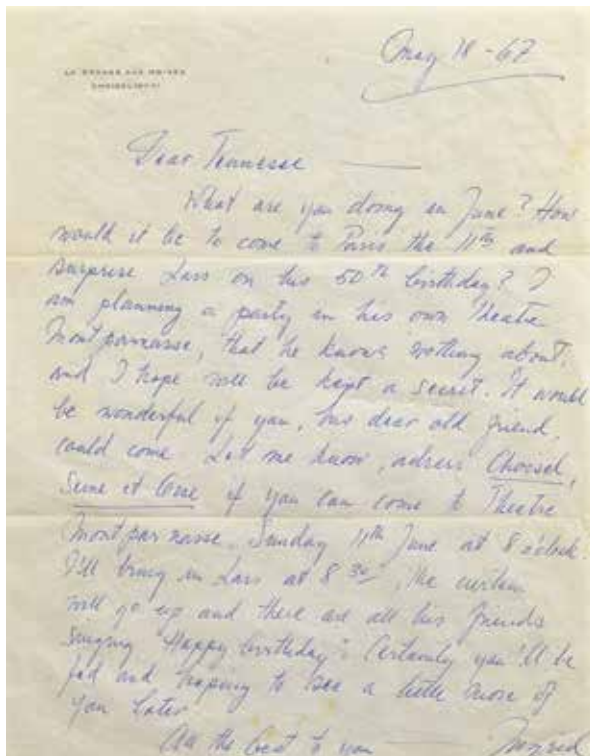 LA GRANGE AUX MOINES
CHOISEL (S-ET-O)
May 18 - 67
Dear Tennesse
What are you doing in June? How
would it be to come to Paris the 11th and
surprise Lars on his 50th birthday? I
am planning a party in his own Theatre
Montparnasse, that he knows nothing about,
and I hope will be kept a secret. It would
be wonderful if you, his dear old friend,
could come. Let me know, adress Choisel,
Seine et Oise if you can come to Theatre
Montparnasse, Sunday 11th June at 8 o'clock.
I'll bring in Lars at 8 30, the curtain
will go up and there are all his friends
singing "Happy birthday". Certainly you'll be
fed and hoping to see a little more of
you later
All the best to you Ingrid